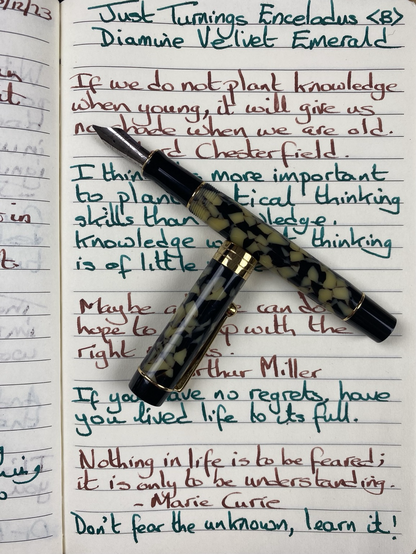 2/12/23
Just Turnings Enceladus <B>
Diamine Velvet Emerald
If we do not plant knowledge
when young, it will give us
no shade when we are old.
Chesterfield.
I think more important
to plant thinking
skills than knowledge.
Knowledge thinking
is of little
Maybe can do
hope to up with the
right
Arthur Miller
If you have no regrets, have
you lived life to its full.
Nothing in life is to be feared;
it is only to be understanding.
- Marie Curie
Don't fear the unknown, learn it!